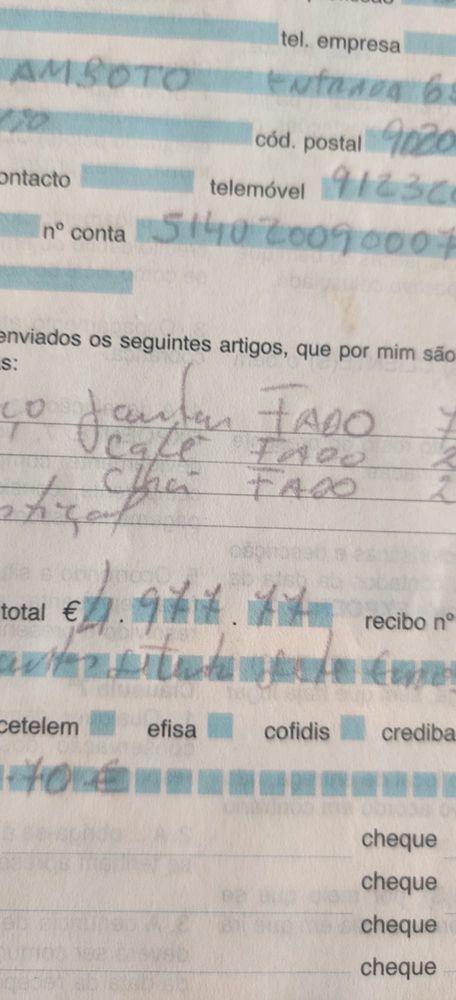 tel. empresa
AMBOTO Entrada 63
cód. postal 9020
ontacto telemóvel 91232
nº conta 514020090007
enviados os seguintes artigos, que por mim são
s:
ço Jantar FADO 7
Café FADO 2
Chá FADO 2
total € 4.977.77 recibo nº
setenta sete
cetelem efisa cofidis crediba
70 €
cheque
cheque
cheque
cheque